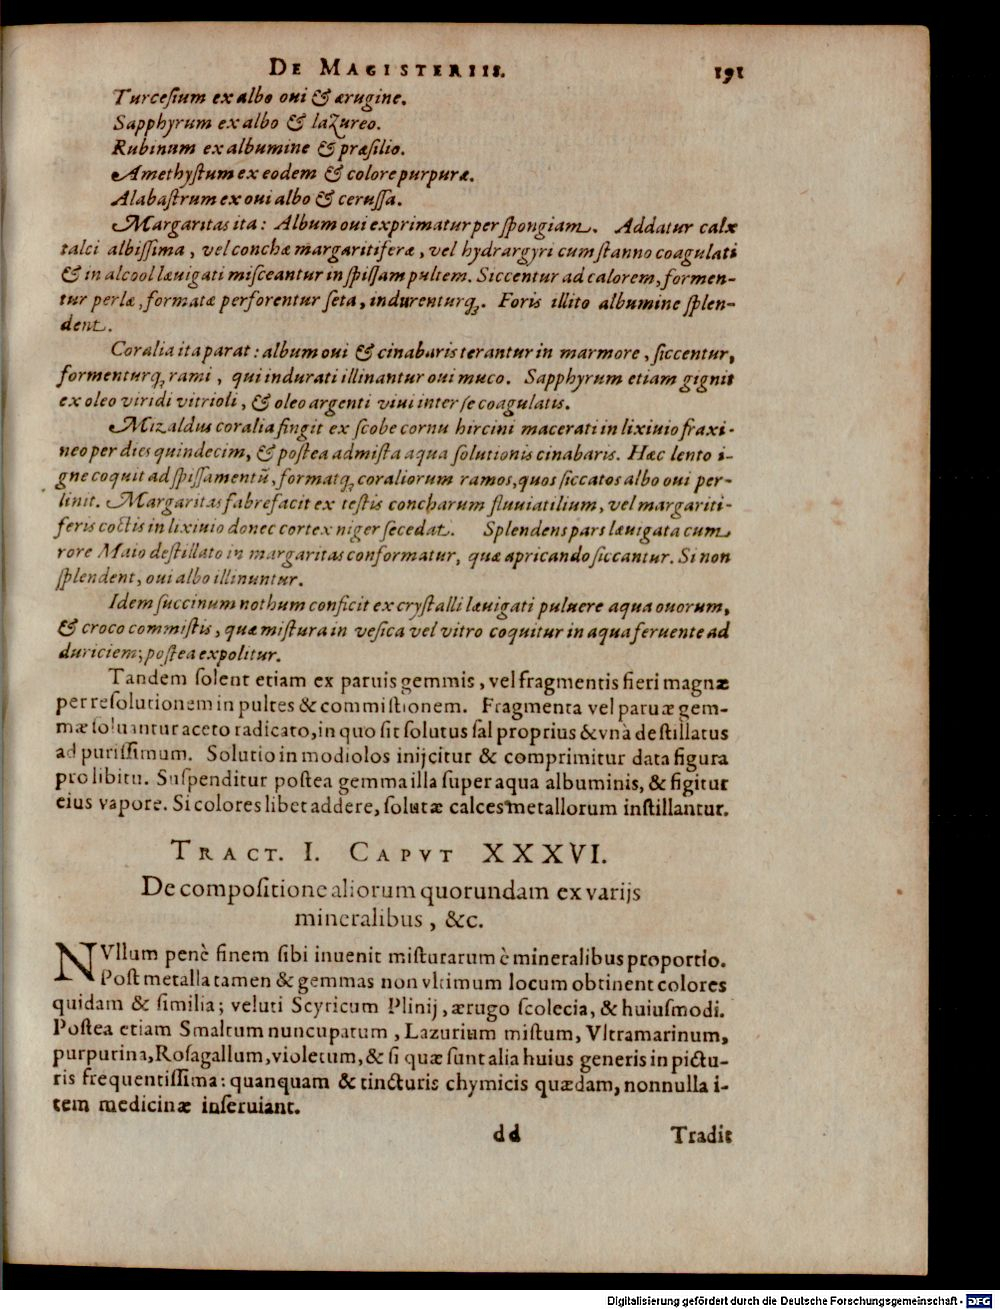 De Magisteriis. 191
Turcesium ex albo oui & ærugine.
Sapphyrum ex albo & lazureo.
Rubinum ex albumine & præsilio.
Amethystum ex eodem & colore purpuræ.
Alabastrum ex oui albo & cerussa.
Margaritas ita: Album oui exprimatur per spongiam. Addatur calx
talci albissima, vel conchæ margaritiferæ, vel hydrargyri cum stanno coagulati
& in alcool læuigati misceantur in spissam pultem. Siccentur ad calorem, formen-
tur perlæ, formatæ perforentur seta, indurenturq;. Foris illito albumine splen-
dent.
Coralia ita parat: album oui & cinabaris terantur in marmore, siccentur,
formenturq; rami, qui indurati illinantur oui muco. Sapphyrum etiam gignit
ex oleo viridi vitrioli, & oleo argenti viui inter se coagulatis.
Mizaldus coralia fingit ex scobe cornu hircini macerati in lixiuio fraxi-
neo per dies quindecim, & postea admista aqua solutionis cinabaris. Hæc lento i-
gne coquit ad spissamentũ, formatq; coraliorum ramos, quos siccatos albo oui per-
linit. Margaritas fabrefacit ex testis concharum fluuiatilium, vel margariti-
feris coctis in lixiuio donec cortex niger secedat. Splendens pars læuigata cum
rore Maio destillato in margaritas conformatur, quæ apricando siccantur. Si non
splendent, oui albo illinuntur.
Idem succinum nothum conficit ex crystalli læuigati puluere aqua ouorum,
& croco commistis, quæ mistura in vesica vel vitro coquitur in aqua feruente ad
duriciem; postea expolitur.
Tandem solent etiam ex paruis gemmis, vel fragmentis fieri magnæ
per resolutionem in pultes & commistionem. Fragmenta vel paruæ gem-
mæ soluantur aceto radicato, in quo sit solutus sal proprius & vnà destillatus
ad purissimum. Solutio in modiolos inijcitur & comprimitur data figura
pro libitu. Suspenditur postea gemma illa super aqua albuminis, & figitur
eius vapore. Si colores libet addere, solutæ calces metallorum instillantur.
Tract. I. Capvt XXXVI.
De compositione aliorum quorundam ex varijs
mineralibus, &c.
NVllum penè finem sibi inuenit misturarum è mineralibus proportio.
Post metalla tamen & gemmas non vltimum locum obtinent colores
quidam & similia; veluti Scyricum Plinij, ærugo scolecia, & huiusmodi.
Postea etiam Smaltum nuncupatum, Lazurium mistum, Vltramarinum,
purpurina, Rosagallum, violetum, & si quæ sunt alia huius generis in pictu-
ris frequentissima: quanquam & tincturis chymicis quædam, nonnulla i-
tem medicinæ inseruiant.
dd Tradit
Digitalisierung gefördert durch die Deutsche Forschungsgemeinschaft - DFG